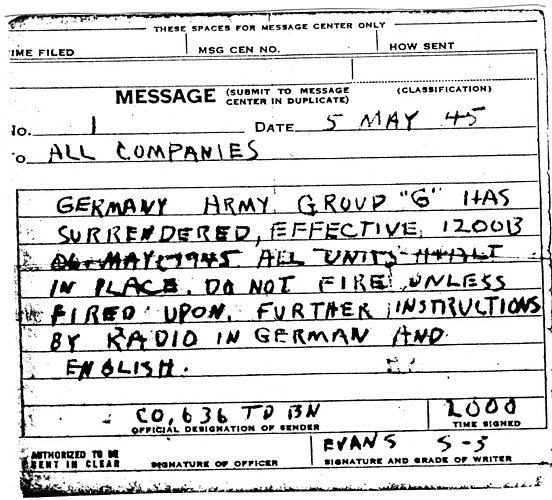 THESE SPACES FOR MESSAGE CENTER ONLY
TIME FILED MSG CEN NO. HOW SENT
MESSAGE (SUBMIT TO MESSAGE CENTER IN DUPLICATE) (CLASSIFICATION)
No. 1 DATE 5 MAY 45
To ALL COMPANIES
GERMANY ARMY GROUP "G" HAS
SURRENDERED, EFFECTIVE 1200B
06 MAY 1945 ALL UNITS HALT
IN PLACE. DO NOT FIRE UNLESS
FIRED UPON. FURTHER INSTRUCTIONS
BY RADIO IN GERMAN AND
ENGLISH.
CO, 636 TD BN 2000
OFFICIAL DESIGNATION OF SENDER TIME SIGNED
EVANS S-3
AUTHORIZED TO BE SENT IN CLEAR SIGNATURE OF OFFICER SIGNATURE AND GRADE OF WRITER